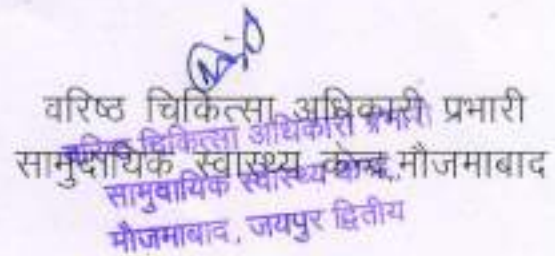 वरिष्ठ चिकित्सा अधिकारी प्रभारी
सामुदायिक स्वास्थ्य केन्द्र, मौजमाबाद
वरिष्ठ चिकित्सा अधिकारी प्रभारी
सामुदायिक स्वास्थ्य केन्द्र,
मौजमाबाद, जयपुर द्वितीय